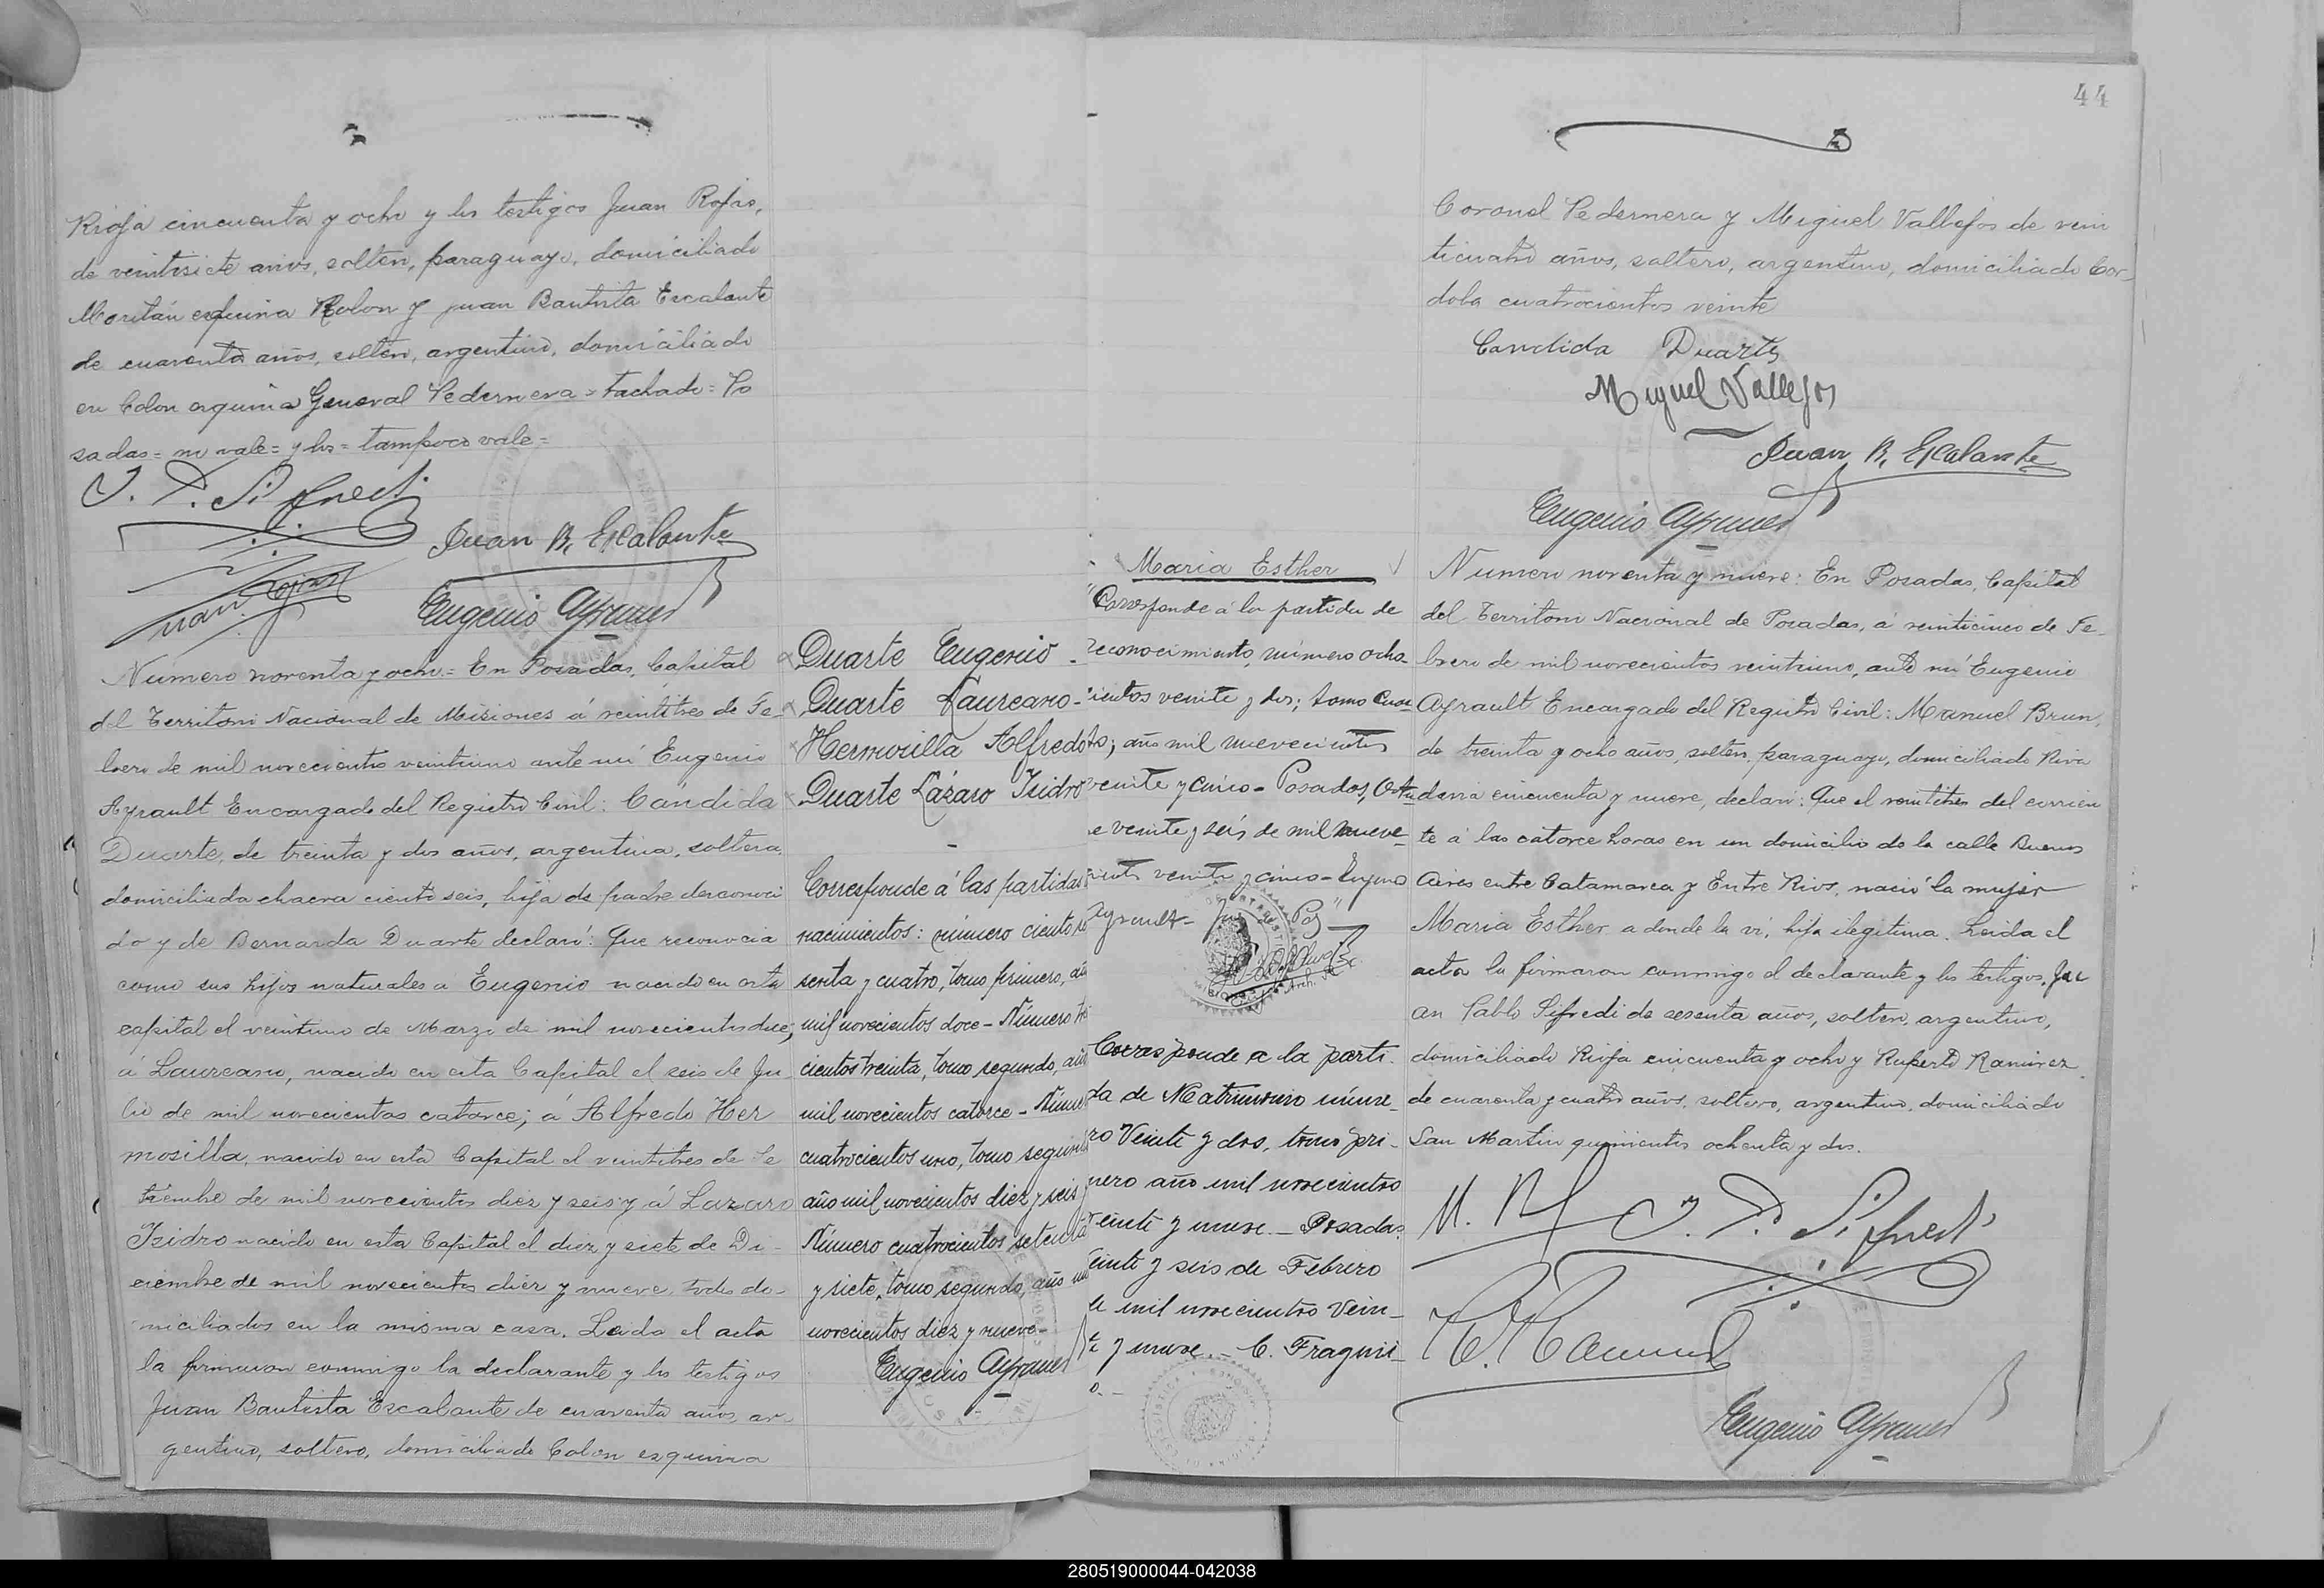 Rioja cincuenta y ocho y los testigos Juan Rojas,
de veintisiete años, soltero, paraguayo, domiciliado
esquina Colon y Juan Bautista Escalante
de cuarenta años, soltero, argentino, domiciliado
en Colon esquina General Pedernera = tachado = Po
sadas = no vale = y los = tampoco vale =
J. P. Sifredi
Juan B. Escalante
Juan Rojas
Eugenio Ayrault
Número noventa y ocho = En Posadas, Capital
del Territorio Nacional de Misiones á veintitres de Fe-
brero de mil novecientos veintiuno ante mí Eugenio
Ayrault Encargado del Registro Civil: Cándida
Duarte, de treinta y dos años, argentina, soltera,
domiciliada chacra ciento seis, hija de padre desconoci
do y de Bernarda Duarte declaró: Que reconocia
como sus hijos naturales a Eugenio nacido en esta
capital el veintiuno de Marzo de mil novecientos doce;
á Laureano, nacido en esta Capital el seis de Ju-
lio de mil novecientos catorce; á Alfredo Her
mosilla, nacido en esta Capital el veintitres de Se
tiembre de mil novecientos diez y seis y á Lazaro
Isidro nacido en esta Capital el diez y siete de Di-
ciembre de mil novecientos diez y nueve, todos do-
miciliados en la misma casa. Leida el acta
la firmaron conmigo la declarante y los testigos
Juan Bautista Escalante de cuarenta años, ar-
gentino, soltero, domiciliado Colon esquina
Duarte Eugenio -
Duarte Laureano -
Hermosilla Alfredo
Duarte Lázaro Isidro
-
Corresponde á las partidas
nacimientos: número ciento se
senta y cuatro, tomo primero, añ
mil novecientos doce - Número tre
cientos treinta, tomo segundo, año
mil novecientos catorce - Núme
cuatrocientos uno, tomo segundo
año mil novecientos diez y seis
Número cuatrocientos setenta
y siete, tomo segundo, año mil
novecientos diez y nueve -
Eugenio Ayrault
44
Maria Esther
"Corresponde á la partida de
reconocimiento, número ocho-
cientos veinte y dos; tomo cuar
to; año mil novecientos
veinte y cinco - Posadas, Octu
e veinte y seis de mil nueve-
cientos veinte y cinco - Eugenio
Ayrault -
Corresponde a la parti-
da de Matrimonio núme-
ro Veinte y dos, tomo pri-
mero año mil novecientos
veinte y nueve. - Posadas
veinte y seis de Febrero
de mil novecientos vein-
te y nueve. - C. Fragui-
o. -
Coronel Pedernera y Miguel Vallejos de vein
ticuatro años, soltero, argentino, domiciliado Cor-
doba cuatrocientos veinte
Candida Duarte
Miguel Vallejos
Juan B. Escalante
Eugenio Ayrault
Numero noventa y nueve: En Posadas, Capital
del Territorio Nacional de Posadas, á veinticinco de Fe-
brero de mil novecientos veintiuno, ante mí Eugenio
Ayrault Encargado del Registro Civil: Manuel Brun,
de treinta y ocho años, soltero, paraguayo, domiciliado Riva
davia cincuenta y nueve, declaró: Que el veintitres del corrien
te á las catorce horas en un domicilio de la calle Buenos
Aires entre Catamarca y Entre Rios, nació la mujer
Maria Esther a donde la ví, hija ilegitima. Leida el
acta la firmaron conmigo el declarante y los testigos, Ju
an Pablo Sifredi de sesenta años, soltero, argentino,
domiciliado Rioja cincuenta y ocho y Ruperto Ramirez
de cuarenta y cuatro años, soltero, argentino, domiciliado
San Martin quinientos ochenta y dos.
M. B
J. P. Sifredi
R. Ramirez
Eugenio Ayrault
280519000044-042038